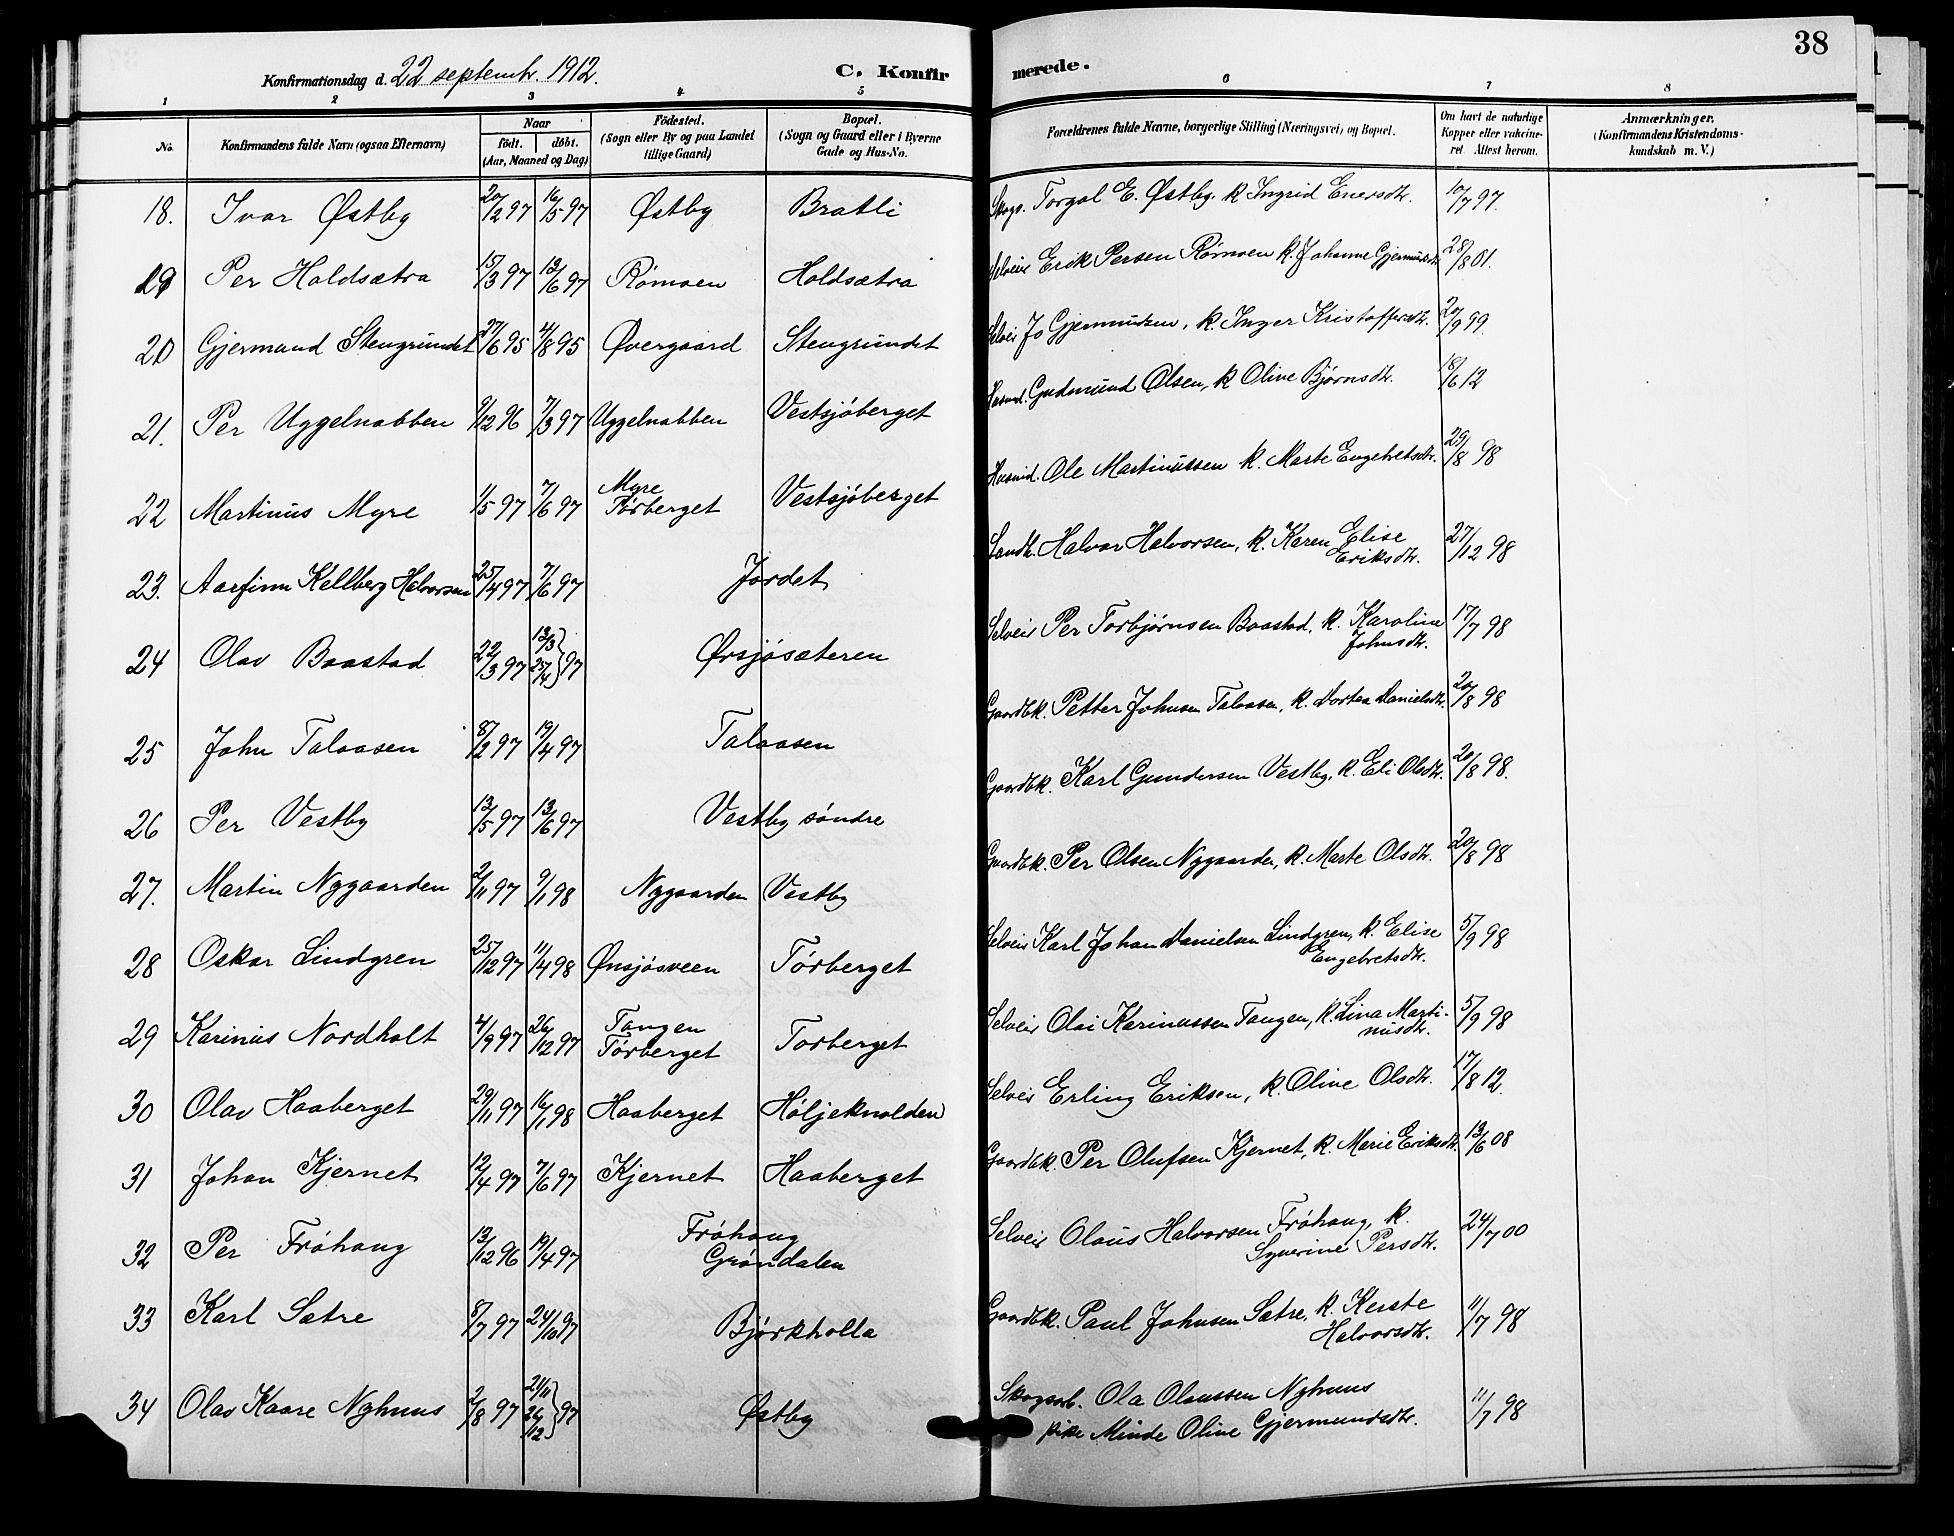 38
Konfirmationsdag d. 22 septembr. 1912.
C. Konfirmerede.
1 2 3 4 5 6 7 8
No.
Konfirmandens fulde Navn (ogsaa Efternavn)
Naar
født. døbt.
(Aar, Maaned og Dag)
Fødested.
(Sogn eller By og paa Landet
tillige Gaard)
Bopæl.
(Sogn og Gaard eller i Byerne
Gade og Hus-No.
Forældrenes fulde Navne, borgerlige Stilling (Næringsvei) og Bopæl.
Om havt de naturlige
Kopper eller vakcine-
ret Attest herom.
Anmærkninger.
(Konfirmandens Kristendoms-
kundskab m. V.)
18. Ivar Østby 20/2 97 16/5 97 Østby Bratli Skogs. Torgal E. Østby. k Ingrid Enersdtr. 10/7 97.
19 Per Holdsætra 15/3 97 13/6 97 Rømoen Holdsætra Selveis Erik Persen Rømoen k. Johanne Gjermundsdtr 28/8 01.
20 Gjermund Stengrundet 27/6 95 4/8 95 Øvergaard Stengrundet Selveis Jo Gjermundsen, k. Inger Kristoffersdtr. 20/9 99.
21. Per Uggelnabben 9/12 96 7/3 97 Uggelnabben Vestsjøberget Husmd. Gudmund Olsen, k Oline Bjørnsdtr. 18/6 12
22 Martinus Myre 1/5 97 7/6 97 Myre
Tørberget Vestsjøberget Husmd. Ole Martinussen k. Marte Engebretsdtr. 29/8 98
23. Aarfinn Kellberg Halvorsen 25/4 97 7/6 97 Jordet Landh. Halvor Halvorsen, k. Karen Elise
Eriksdtr. 27/12 98
24 Olav Baastad 22/3 97 13/3 25/4 } 97 Ørsjøsæteren Selveis Per Torbjørnsen Baastad, k. Karoline
Johnsdtr. 17/7 98
25 John Talaasen 8/2 97 19/4 97 Talaasen Gaardbk. Petter Johnsen Talaasen, k. Dortea Danielsdtr. 20/8 98
26 Per Vestby 13/5 97 13/6 97 Vestby søndre Gaardbk. Karl Gundersen Vestby, k. Eli Olsdtr. 20/8 98.
27. Martin Nygaarden 2/11 97 9/1 98 Nygaarden Vestby Gaardbk. Per Olsen Nygaarden, k. Marte Olsdtr. 20/8 98
28 Oskar Lindgren 25/12 97 11/4 98 Ønsjøsveen Tørberget Selveis Karl Johan Danielsen Lindgren, k. Elise
Engebretsdtr. 5/9 98
29 Karinus Nordholt 4/9 97 26/12 97 Tangen
Tørberget Torberget Selveis Olai Karinussen Tangen, k. Lina Marti-
nusdtr. 5/9 98
30 Olav Haaberget 29/11 97 16/1 98 Haaberget Høljeknolden Selveis Erling Eriksen, k. Oline Olsdtr. 17/8 12.
31 Johan Kjernet 12/4 97 7/6 97 Kjernet Haaberget Gaardbk. Per Olufsen Kjernet, k. Marie Eriksdtr. 13/6 08
32 Per Frøhaug 13/12 96 19/4 97 Frøhaug
Grøndalen Selveis Olaus Halvorsen Frøhaug, k.
Syverine Persdtr. 24/7 00
33 Karl Sætre 8/7 97 24/10 97 Bjørkholla Gaardbk. Paul Johnsen Sætre, k. Kerste
Halvorsdtr. 11/7 98
34 Olav Kaare Nyhuus 2/8 97 21/11 26/12 } 97 Østby Skogsarb. Ola Olaussen Nyhuus
pike Minde Oline Gjermundsdtr. 11/7 98